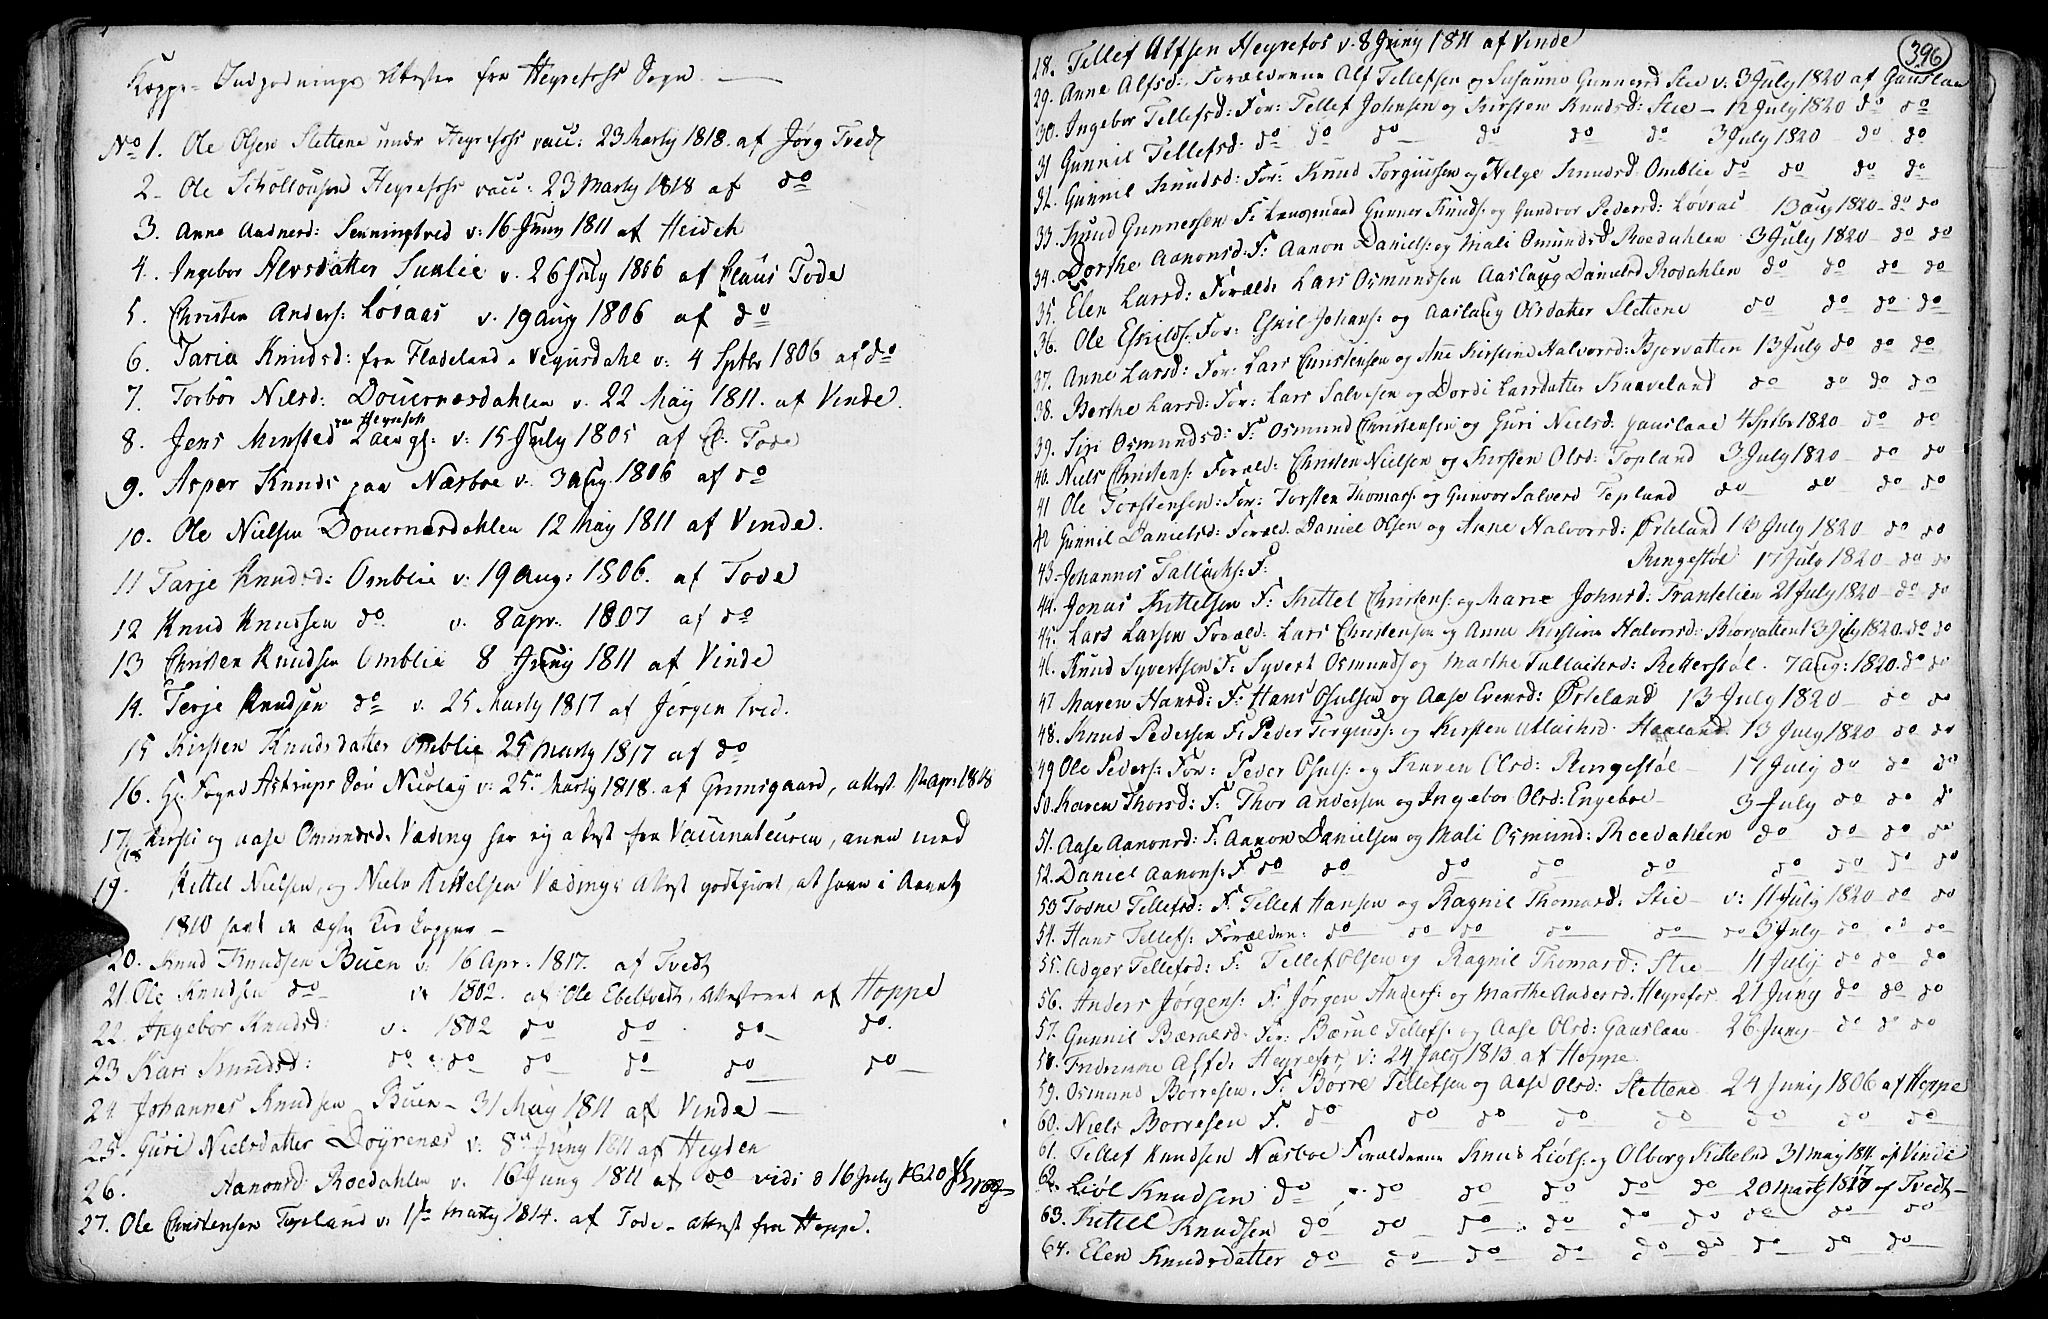 Koppe-Indpodnings Attester fra Heyrefoss Sogn. —
No 1. Ole Olsen Slettene under Heyrefoss vacc: 23 Marty 1818. af Jørg Tvedt
2_ Ole Heyrefoss vacc: 23 Marty 1818 af do
3. Anne Aadnerd: v: 16 Juny 1811 af Heideh
4. Ingebor Alvsdatter v. 26 July 1806 af Claus Tode
5. Christen Anders: Losaas v. 19 Aug 1806 af do
6. Taria Knudsd: fra Fladeland - Vegusdahl v: 4 Sptbr 1806 af do
7. Torbor Nilsd: Douernæsdahlen v. 22 May 1811. af Vinde.
8. Jens Minsted v: 15 July 1805 af Cl. Tode
9. Asper Knuds paa Næsboe v. 3 Aug. 1806 af do
10. Ole Nielsen Douernæsdahlen 12 May 1811 af Vinde.
11 Tarje Knudsd: Omblie v: 19 Aug: 1806. af Tode
12 Knud Knudsen do v. 8 apr. 1807 af do
13 Christen Knudsen Omblie 8 Juny 1811 af Vinde
14. Terje Knudsen do v. 25 Marty 1817 af Jörgen Tved.
15 Kirsten Knudsdatter Omblie 25 Marty 1817 af do
16. Hr Foged Astrups Søn Nicolay v: 25 Marty 1818. af Grimsgaard, attest apr: 1818
17/18 Kirsti og Aase Omundsd: Væding har ej attest fra Vaccinateuren, men med
19. Kittel Nielsen, og Niels Kittelsen Vædings Attest godtgiort, at have i Aaret
1810 havt de ægte Koe kopper —
20. Knud Knudsen Buen v: 16 Apr. 1817. af Tvedt
21. Ole Knudsen do v: 1802. af Ole Ebeltvedt, Attesteret af Hoppe
22. Ingebor Knudsd: v. 1802 do do do do.
23 Kari Knudsd: do do do do do do
24. Johannes Knudsen Buen - 31 May 1811 af Vinde —
25. Guri Nielsdatter Doyrenæs v: 8 Juny 1811 af Heyden
26. Aanonsd: Roedahlen v. 16 Juny 1811 af do vidi d 16 July 1820
27. Ole Christensen Topland v: Marty 1814. af Tode - Attest fra Hoppe.
396
28. Tellef Alfsen Heyrefos v. 8 Juny 1811 af Vinde
29. Anne Alfsd: Forældrene Alf Tellefsen og Susanne Gunnersd Stie v. 3 July 1820 af Gauslaa
30. Ingebor Tellefsd: For: Tellef Johnsen og Kirsten Knudsd: Stie - 12 July 1820 do do
31 Gunnil Tellefsd. do do do do do do 3 July 1820 do do
32. Gunnil Knudsd: For: Knud Torgiusen og Helge Knudsd: Omblie do do do do
33. Knud Gunnersen F: Gunner Knuds: og Gundvor Pedersd: Løvras 13 aug 1820 - do do
34. Dorthe Aanonsd: F: Aanon Daniels: og Mali Omundsd Roedahlen 3 July 1820 - do do
35. Elen Larsd: Foræld: Lars Osmundsen Aaslaug Danielsd Rodahlen do do do do
36. Ole Eskilds: For: Eskil Johans: og Aaslaug Olsdatter Slettene do do do do
37. Anne Larsd: For: Lars Christensen og Ane Kirstine Halvorsd: Bjorvatten 13 July do do do
38. Berthe Larsd: For: Lars Salvesen og Dordi Larsdatter Kaaveland do do do do
39. Siri Osmundsd: F: Osmund Christensen og Guri Nielsd. Gauslaae 4 Sptbr 1820 do do
40. Niels Christens: Foræld: Christen Nielsen og Kirsten Olsd: Topland 3 July 1820 - do do
41 Ole Torstensen: For: Torsten Thomas: og Gunvor Salvesd Topland do do do do
42 Gunnil Danielsd: Foræld. Daniel Olsen og Anne Halvorsd: Ørleland 13 July 1820 - do do
43. Johannes Tallachs: F: Ringestøl 17 July 1820 - do do
44. Jonas Kittelsen F: Kittel Christens: og Marie Johnsd: Trantelien 21 July 1820 - do do
45. Lars Larsen Foræld: Lars Christensen og Anne Kirstine Halvorsd: Biorvatten 13 July 1820. do do
46. Knud Syvertsen F: Syvert Osmunds og Marthe Tallachsd: Retterstøl. 7 Aug: 1820. do do
47 Maren Hansd: F: Hans Osulsen og Aase Evensd: Ørleland 13 July 1820 - do do
48. Knud Pedersen F: Peder Torgiuss: og Kirsten Atlachsd. Haaland. 13 July 1820 do do
49 Ole Peders: For: Peder Osuls: og Karen Olsd: Ringestøl - 17 July do do do
50. Karen Thorsd: F: Thor Andersen og Ingebor Olsd: Engeboe - 3 July do do do
51. Aase Aanonsd: F: Aanon Danielsen og Mali Osmund: Roedahlen do do do do
52. Daniel Aanons: F do do do do do do do do do
53 Tovne Tellefsd: F: Tellef Hansen og Ragnil Thomasd: Stie - v: 11 July 1820 do do
54. Hans Tellefs: Forælder: do do do do do do 3 July do do do
55. Adger Tellefsd: F: Tellef Olsen og Ragnil Thomasd: Stie - 11 July do do do
56. Anders Jørgens: F: Jörgen Anders: og Marthe Andersd. Heyrefos. 21 Juny do do do
57. Gunnil Bærulsd: For: Bærul Tellefs: og Aase Olsd: Gauslaae. 26 Juny do do do
58. Alfsd: Heyrefos, v: 24 July 1813 af Hoppe
59. Osmund Borresen. F: Borre Tellefsen og Aase Olsd: Slettene 24 Juny 1806 af Hoppe
60. Niels Borresen F. do do do do do do do do
61. Tellef Knudsen Næsboe Forældrene Knud Liöls: og Olborg Kittelsd 31 may 1811 af Vinde
62. Liöl Knudsen do do do do do do 20 Marty 1817 af Tvedt -
63. Kittil Knudsen do do do do do do do do do
64. Elen Knudsdatter do do do do do do do do do